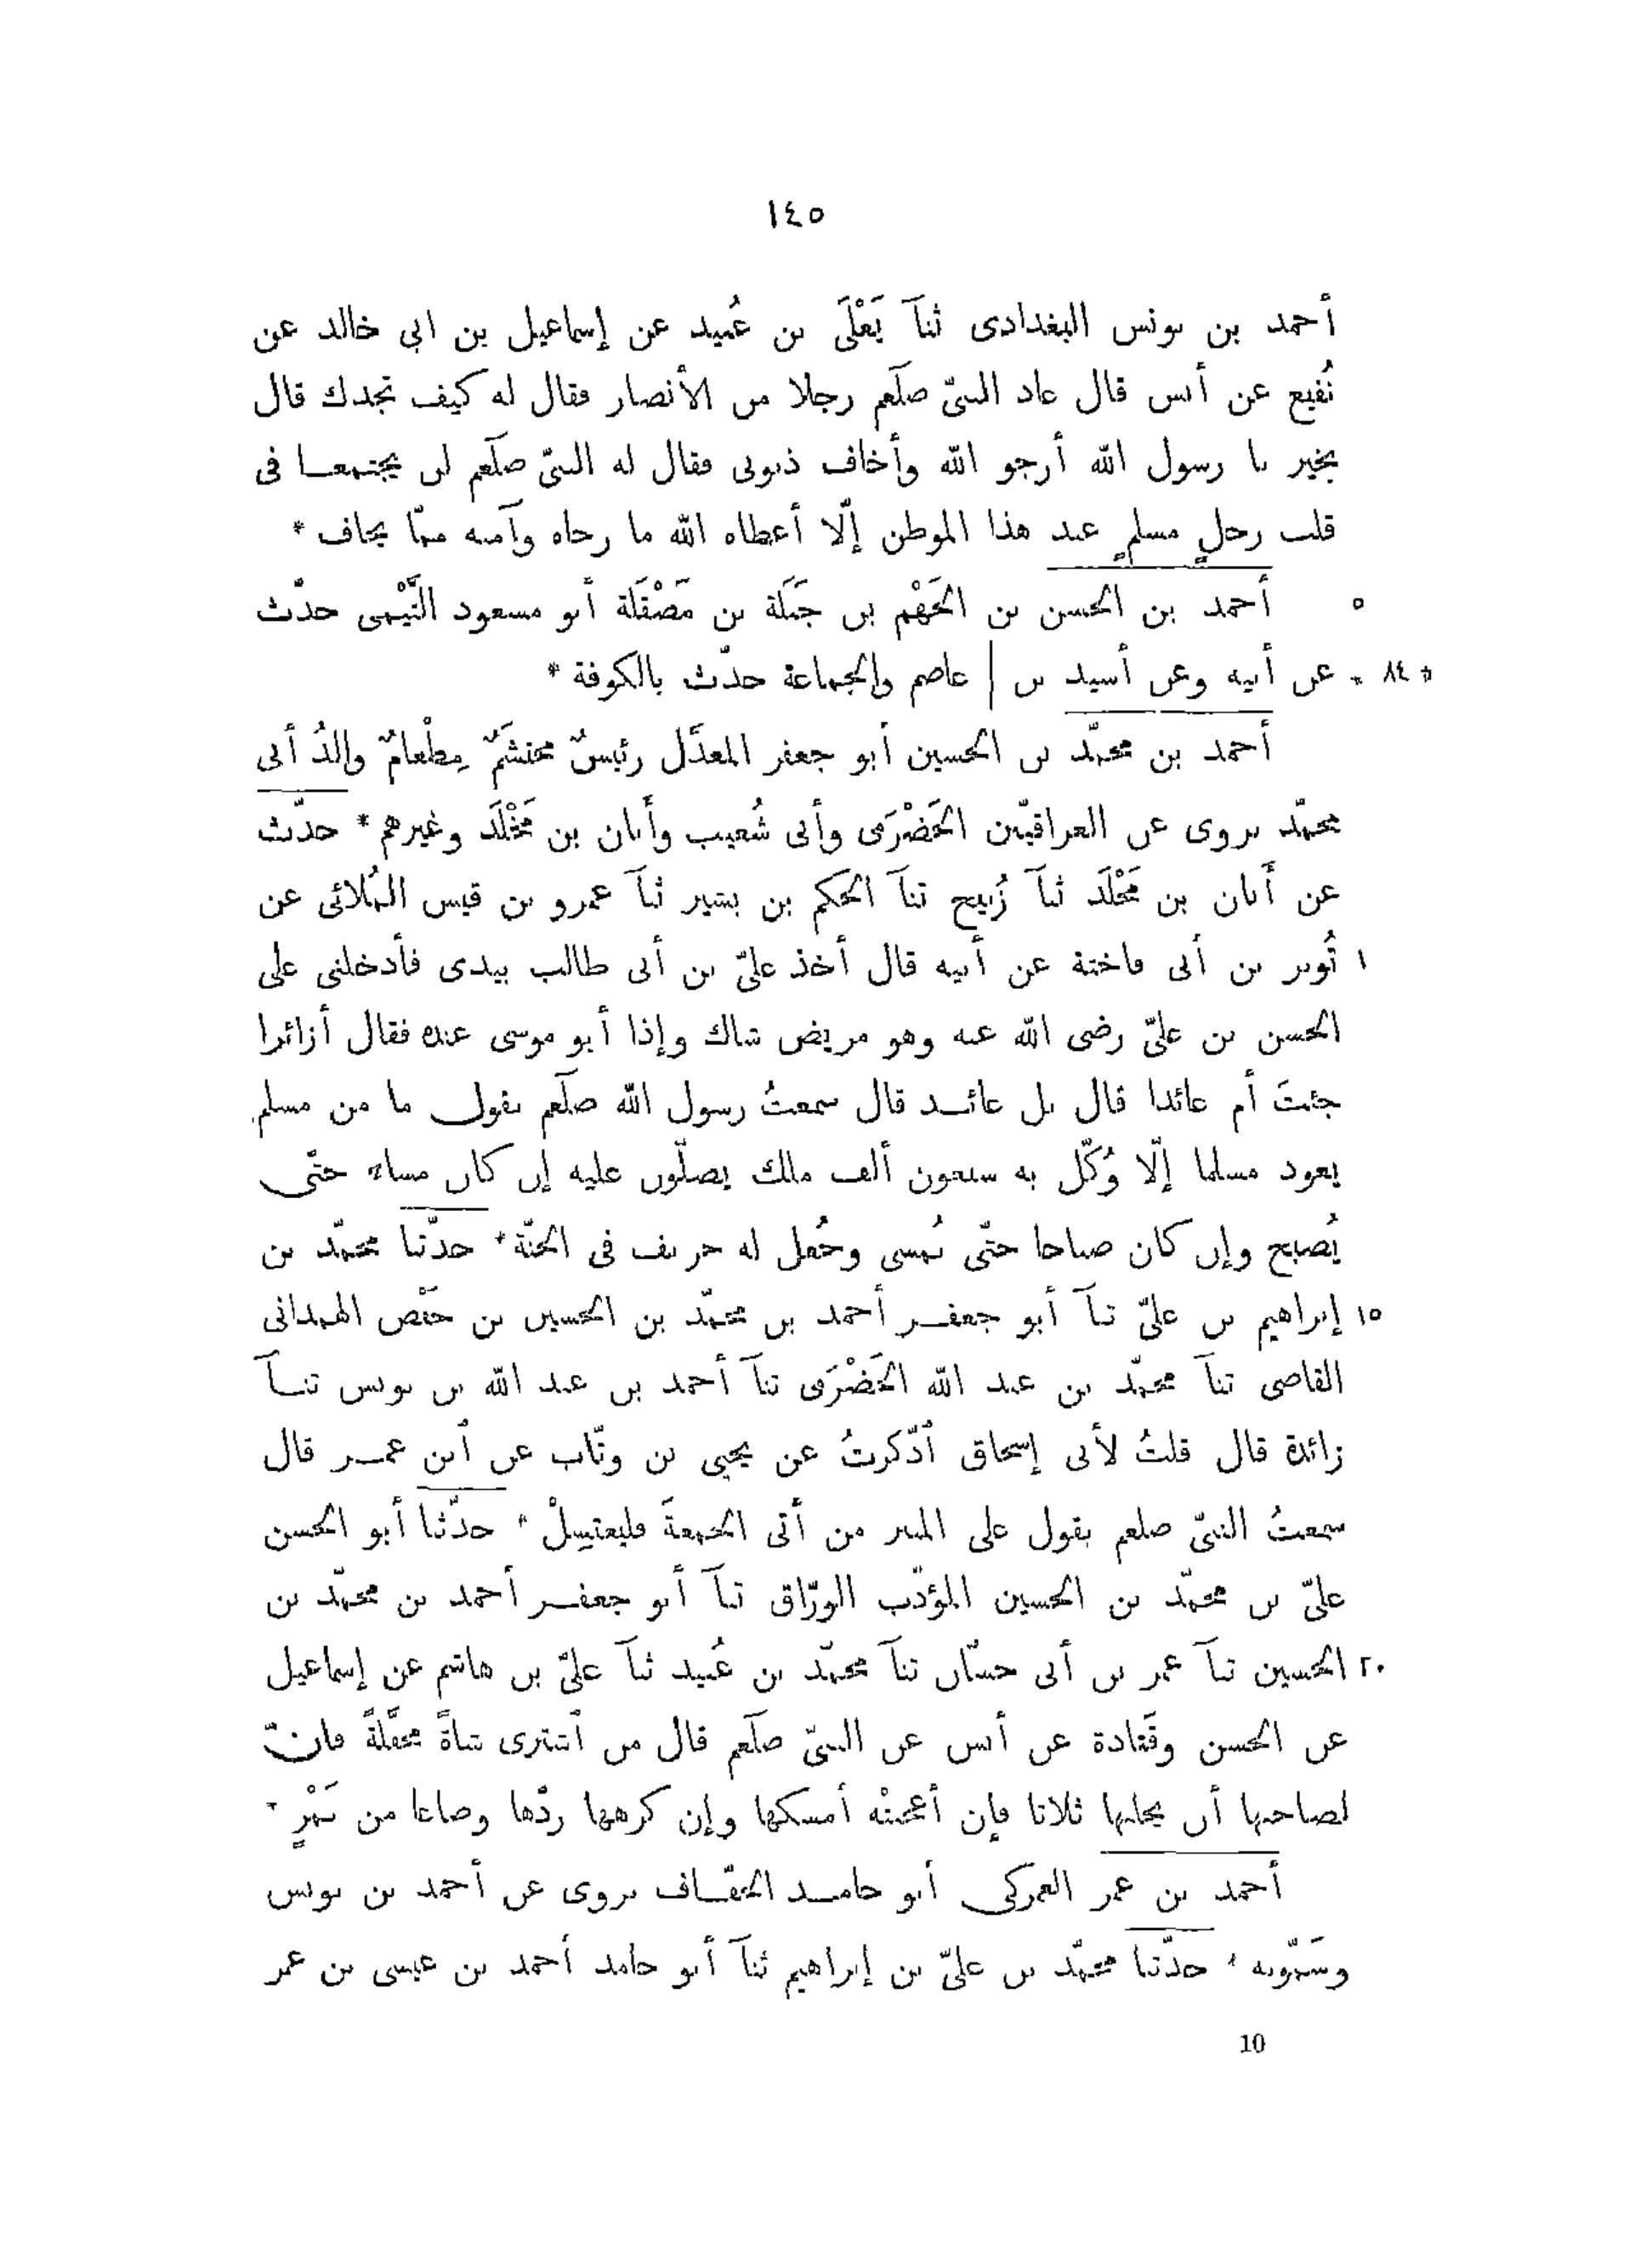 ١٤٥
أحمد بن يونس البغدادى ثنآ يَعْلَى بن عُبيد عن إسماعيل بن ابى خالد عن
نُفيع عن أنس قال عاد النبىّ صلّعم رجلا من الأنصار فقال له كيف تجدك قال
بخير يا رسول الله أرجو الله وأخاف ذنوبى فقال له النبىّ صلّعم لن يجتمعا فى
قلب رجلٍ مسلمٍ عند هذا الموطن إلّا أعطاه الله ما رجاه وآمنه ممّا يخاف *
٥ أحمد بن الحسن بن الجَهْم بن جَبَلة بن مَصْقَلة أبو مسعود التَّيْمى حدّث
* ٨٤ * عن أبيه وعن أسيد بن | عاصم والجماعة حدّث بالكوفة *
أحمد بن محمّد بن الحسين أبو جعفر المعدَّل رئيسٌ محتشَمٌ مِطْعامٌ والدُ أبى
محمّد يروى عن العراقيّين الحَضْرَمى وأبى شُعيب وأبان بن مَخْلَد وغيرهم * حدّث
عن أبان بن مَخْلَد ثنآ زُنيج ثنآ الحكم بن بشير ثنآ عمرو بن قيس المُلائى عن
١ ثُوير بن أبى فاختة عن أبيه قال أخذ علىّ بن أبى طالب بيدى فأدخلنى على
الحسن بن علىّ رضى الله عنه وهو مريض شاك وإذا أبو موسى عنده فقال أزائرا
جئتَ أم عائدا قال بل عائد قال سمعتُ رسول الله صلّعم يقول ما من مسلم
يعود مسلما إلّا وُكّل به سبعون ألف ملك يصلّون عليه إن كان مساء حتّى
يُصبح وإن كان صباحا حتّى يُمسى وجُعل له خريف فى الجنّة * حدّثنا محمّد بن
١٥ إبراهيم بن علىّ ثنآ أبو جعفر أحمد بن محمّد بن الحسين بن حَفْص الهمدانى
القاضى ثنآ محمّد بن عبد الله الحَضْرَمى ثنآ أحمد بن عبد الله بن يونس ثنآ
زائدة قال قلتُ لأبى إسحاق أذّكرتُ عن يحيى بن وثّاب عن أبن عمر قال
سمعتُ النبىّ صلعم يقول على المنبر من أتى الجمعةَ فليغتسِلْ * حدّثنا أبو الحسن
علىّ بن محمّد بن الحسين المؤدّب الورّاق ثنآ أبو جعفر أحمد بن محمّد بن
٢٠ الحسين ثنآ عمر بن أبى حسّان ثنآ محمّد بن عُبيد ثنآ علىّ بن هاشم عن إسماعيل
عن الحسن وقَتادة عن أنس عن النبىّ صلّعم قال من أشترى شاةً محفَّلةً فانّ
لصاحبها أن يحلبها ثلاثا فإن أعجبتْه أمسكها وإن كرهها ردّها وصاعا من تَمْرٍ *
أحمد بن عمر العمركى أبو حامد الخفّاف يروى عن أحمد بن يونس
وسَمّويه * حدّثنا محمّد بن علىّ بن إبراهيم ثنآ أبو حامد أحمد بن عيسى بن عمر
10